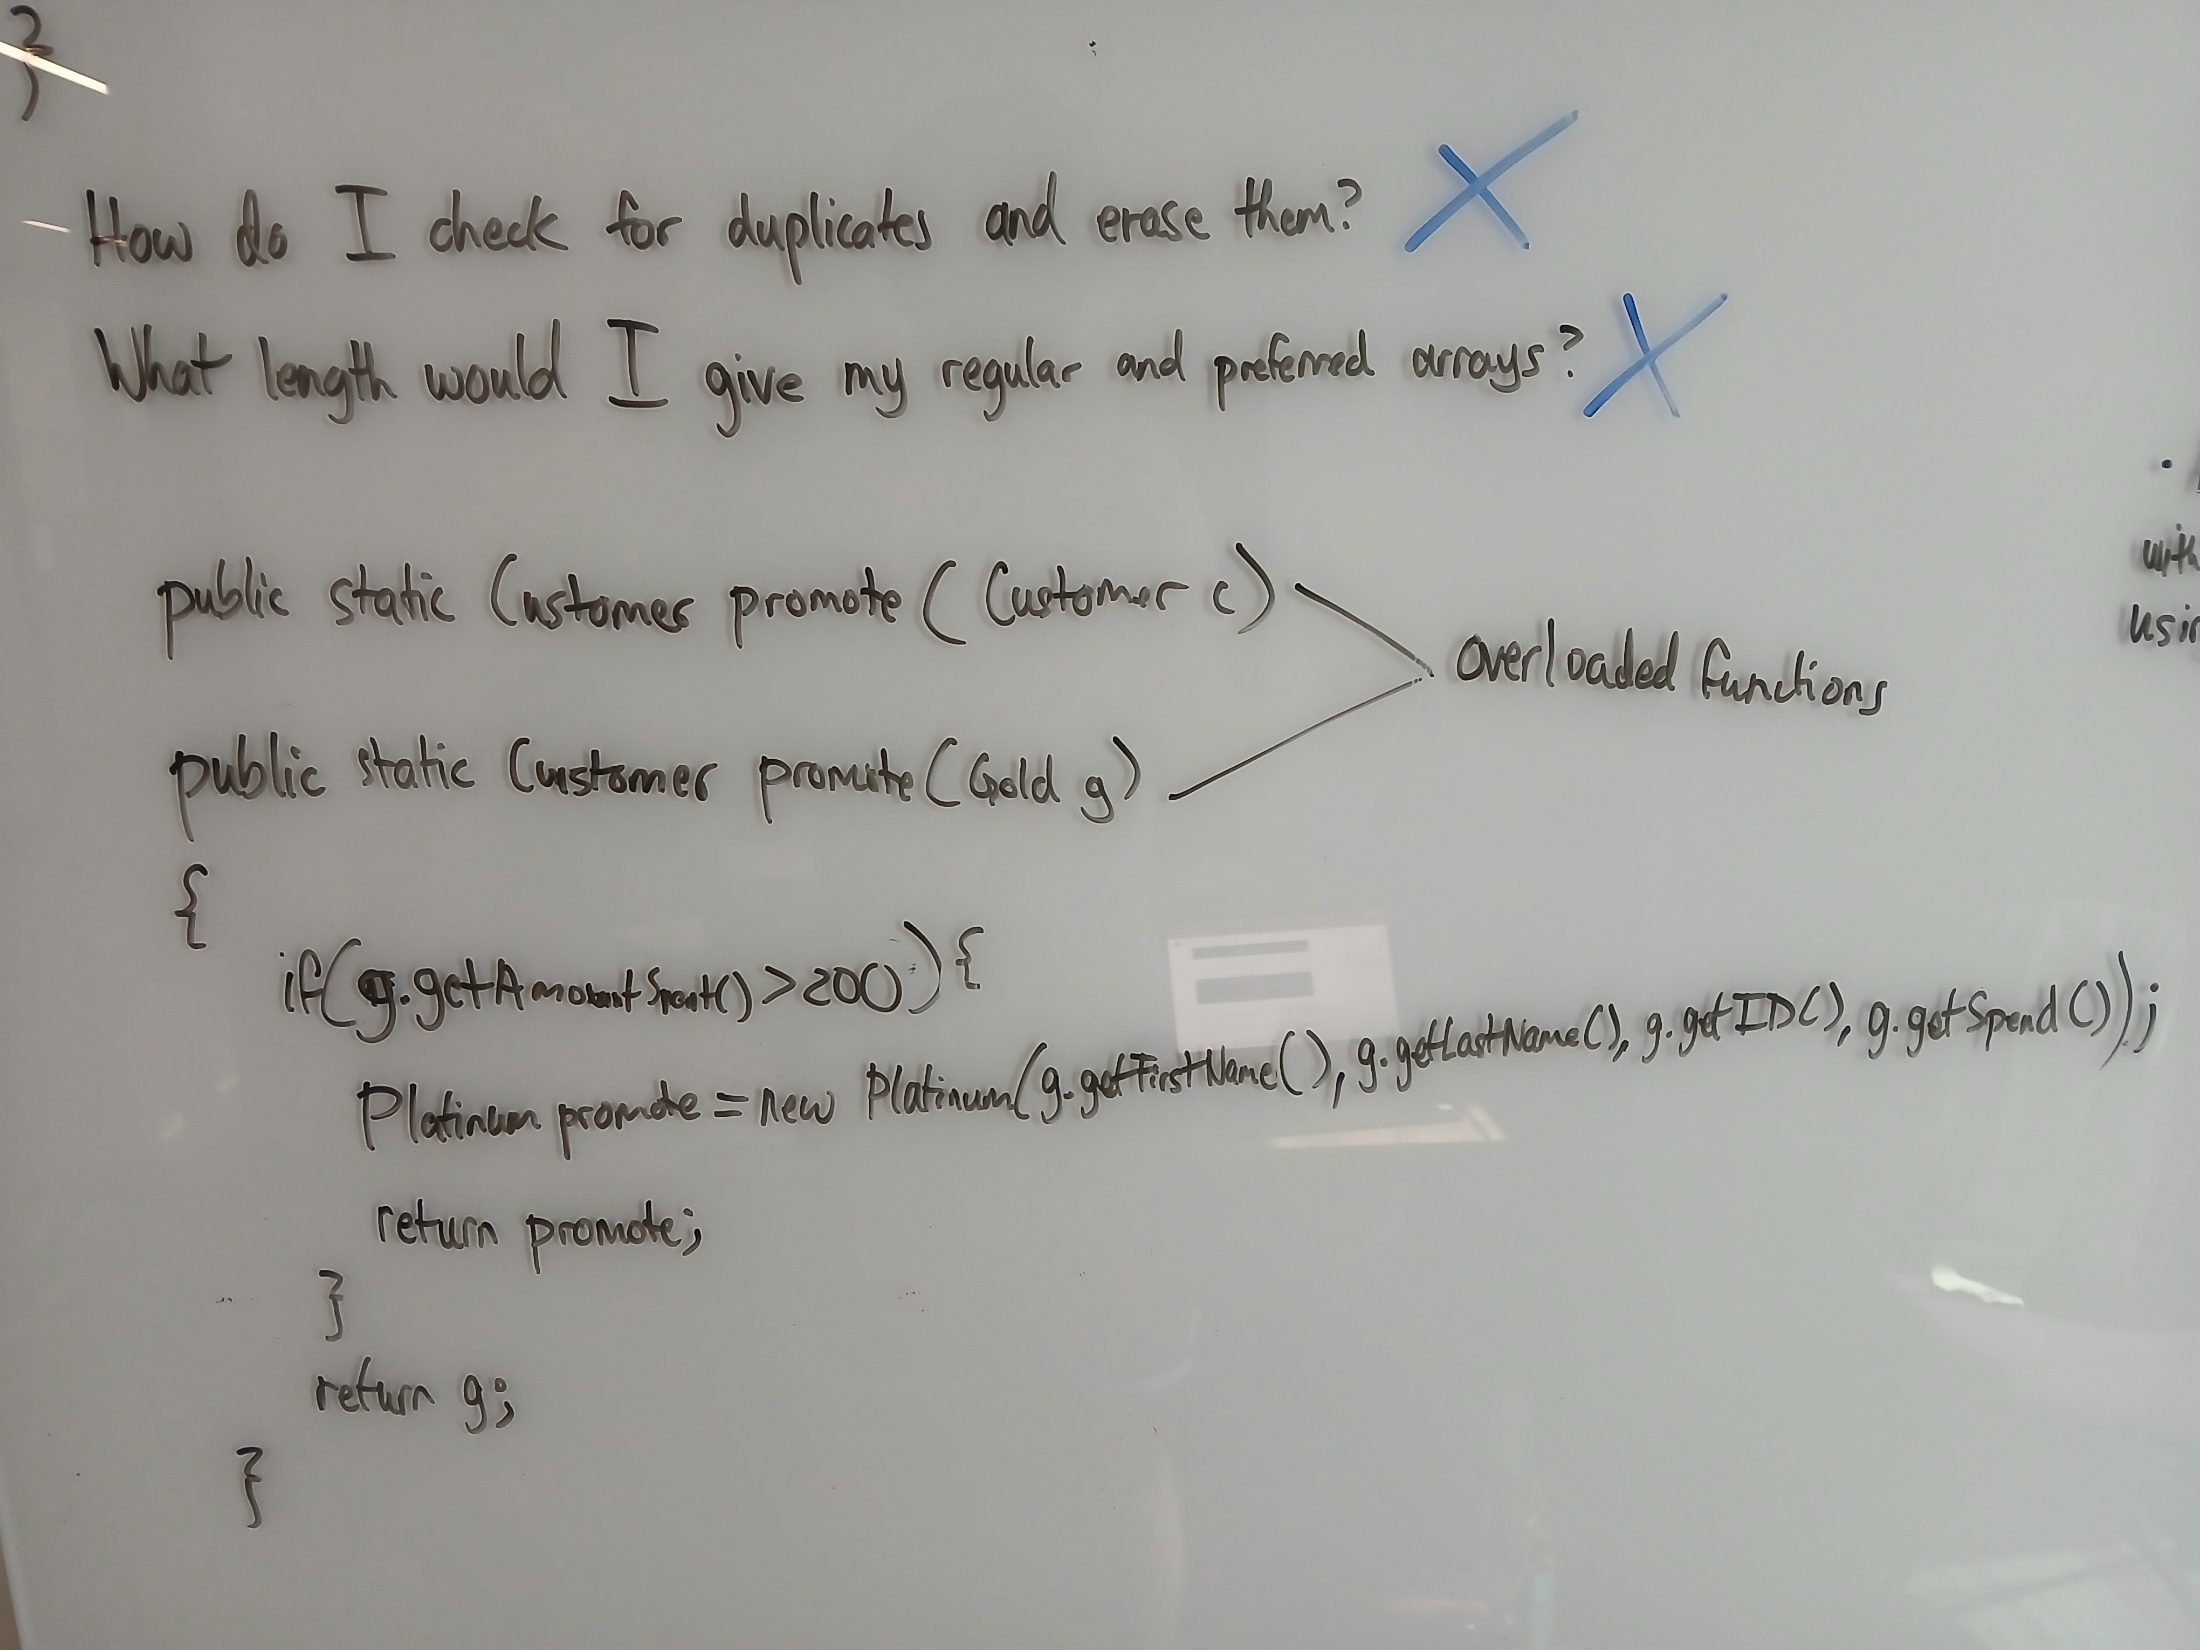 }
)
How do I check for duplicates and erase them? X
What length would I give my regular and preferred arrays? X
public static Customer promote( Customer c)
overloaded functions
public static Customer promote(Gold g)
{
if(g.getAmountSpent()>200){
Platinum promote = new Platinum(g.getFirstName(), g.getLastName(), g.getID(), g.getSpend());
return promote;
}
return g;
}
with